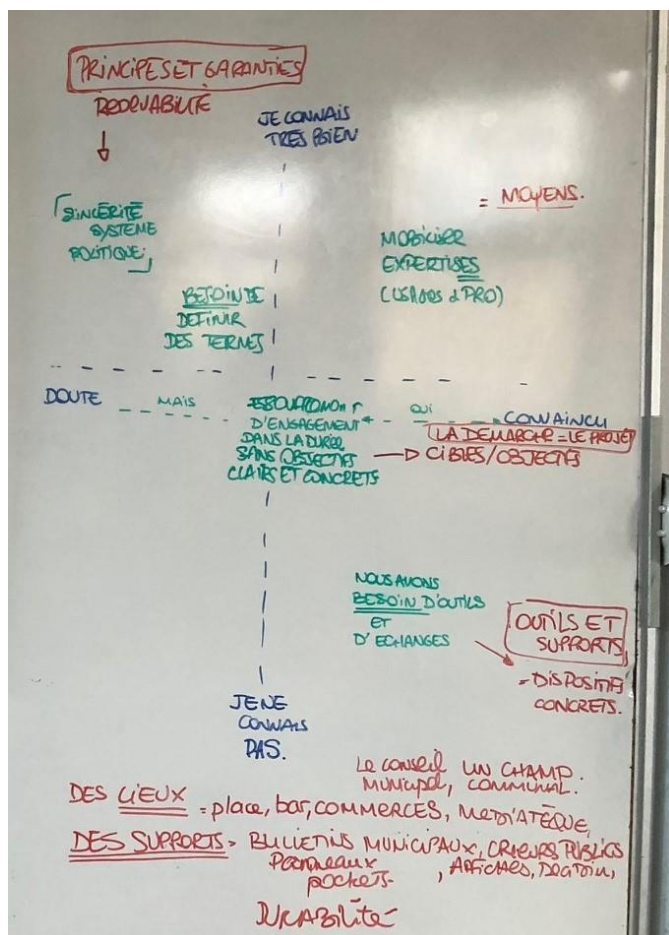 PRINCIPES ET GARANTIES
REDEVABILITÉ
JE CONNAIS
TRES BIEN
= MOYENS.
SINCÉRITÉ
SYSTÈME
POLITIQUE
MOBILISER
EXPERTISES
(USAGES & PRO)
BESOIN DE
DEFINIR
DES TERMES
DOUTE
MAIS
OUI
CONVAINCU
D'ENGAGEMENT
DANS LA DURÉE
SANS OBJECTIFS
CLAIRS ET CONCRETS
LA DEMARCHE = LE PROJET
CIBLES/OBJECTIFS
NOUS AVONS
BESOIN D'OUTILS
ET
D'ECHANGES
OUTILS ET
SUPPORTS
= DISPOSITIFS
CONCRETS.
JE NE
CONNAIS
PAS.
Le conseil
municipal,
UN CHAMP.
COMMUNAL.
DES LIEUX = place, bar, COMMERCES, MEDIATÈQUE,
DES SUPPORTS = BULLETINS MUNICIPAUX, CRIEURS PUBLICS
Panneaux
pockets
, AFFICHES,
DURABILITÉ